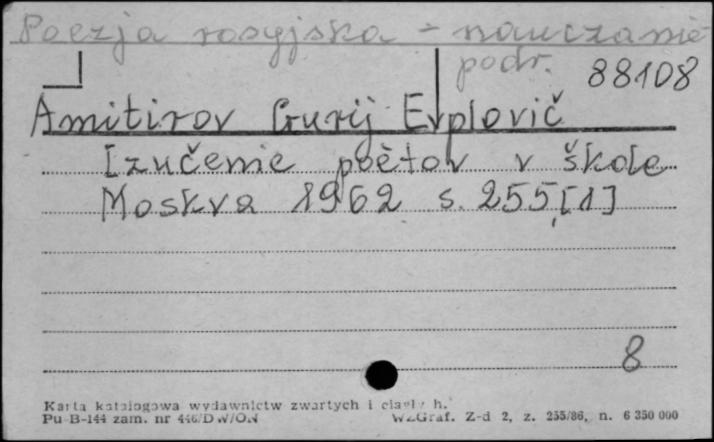 Poezja rosyjska - nauczanie
podr. 88108
Amitirov Gurij Evplovič
Izučenie poètov v škole
Moskva 1962 s. 255,[1]
8
Karta katalogowa wydawnictw zwartych i ciągły h.
Pu-B-144 zam. nr 446/DW/ON WZGraf. Z-d 2, z. 255/86, n. 6 350 000